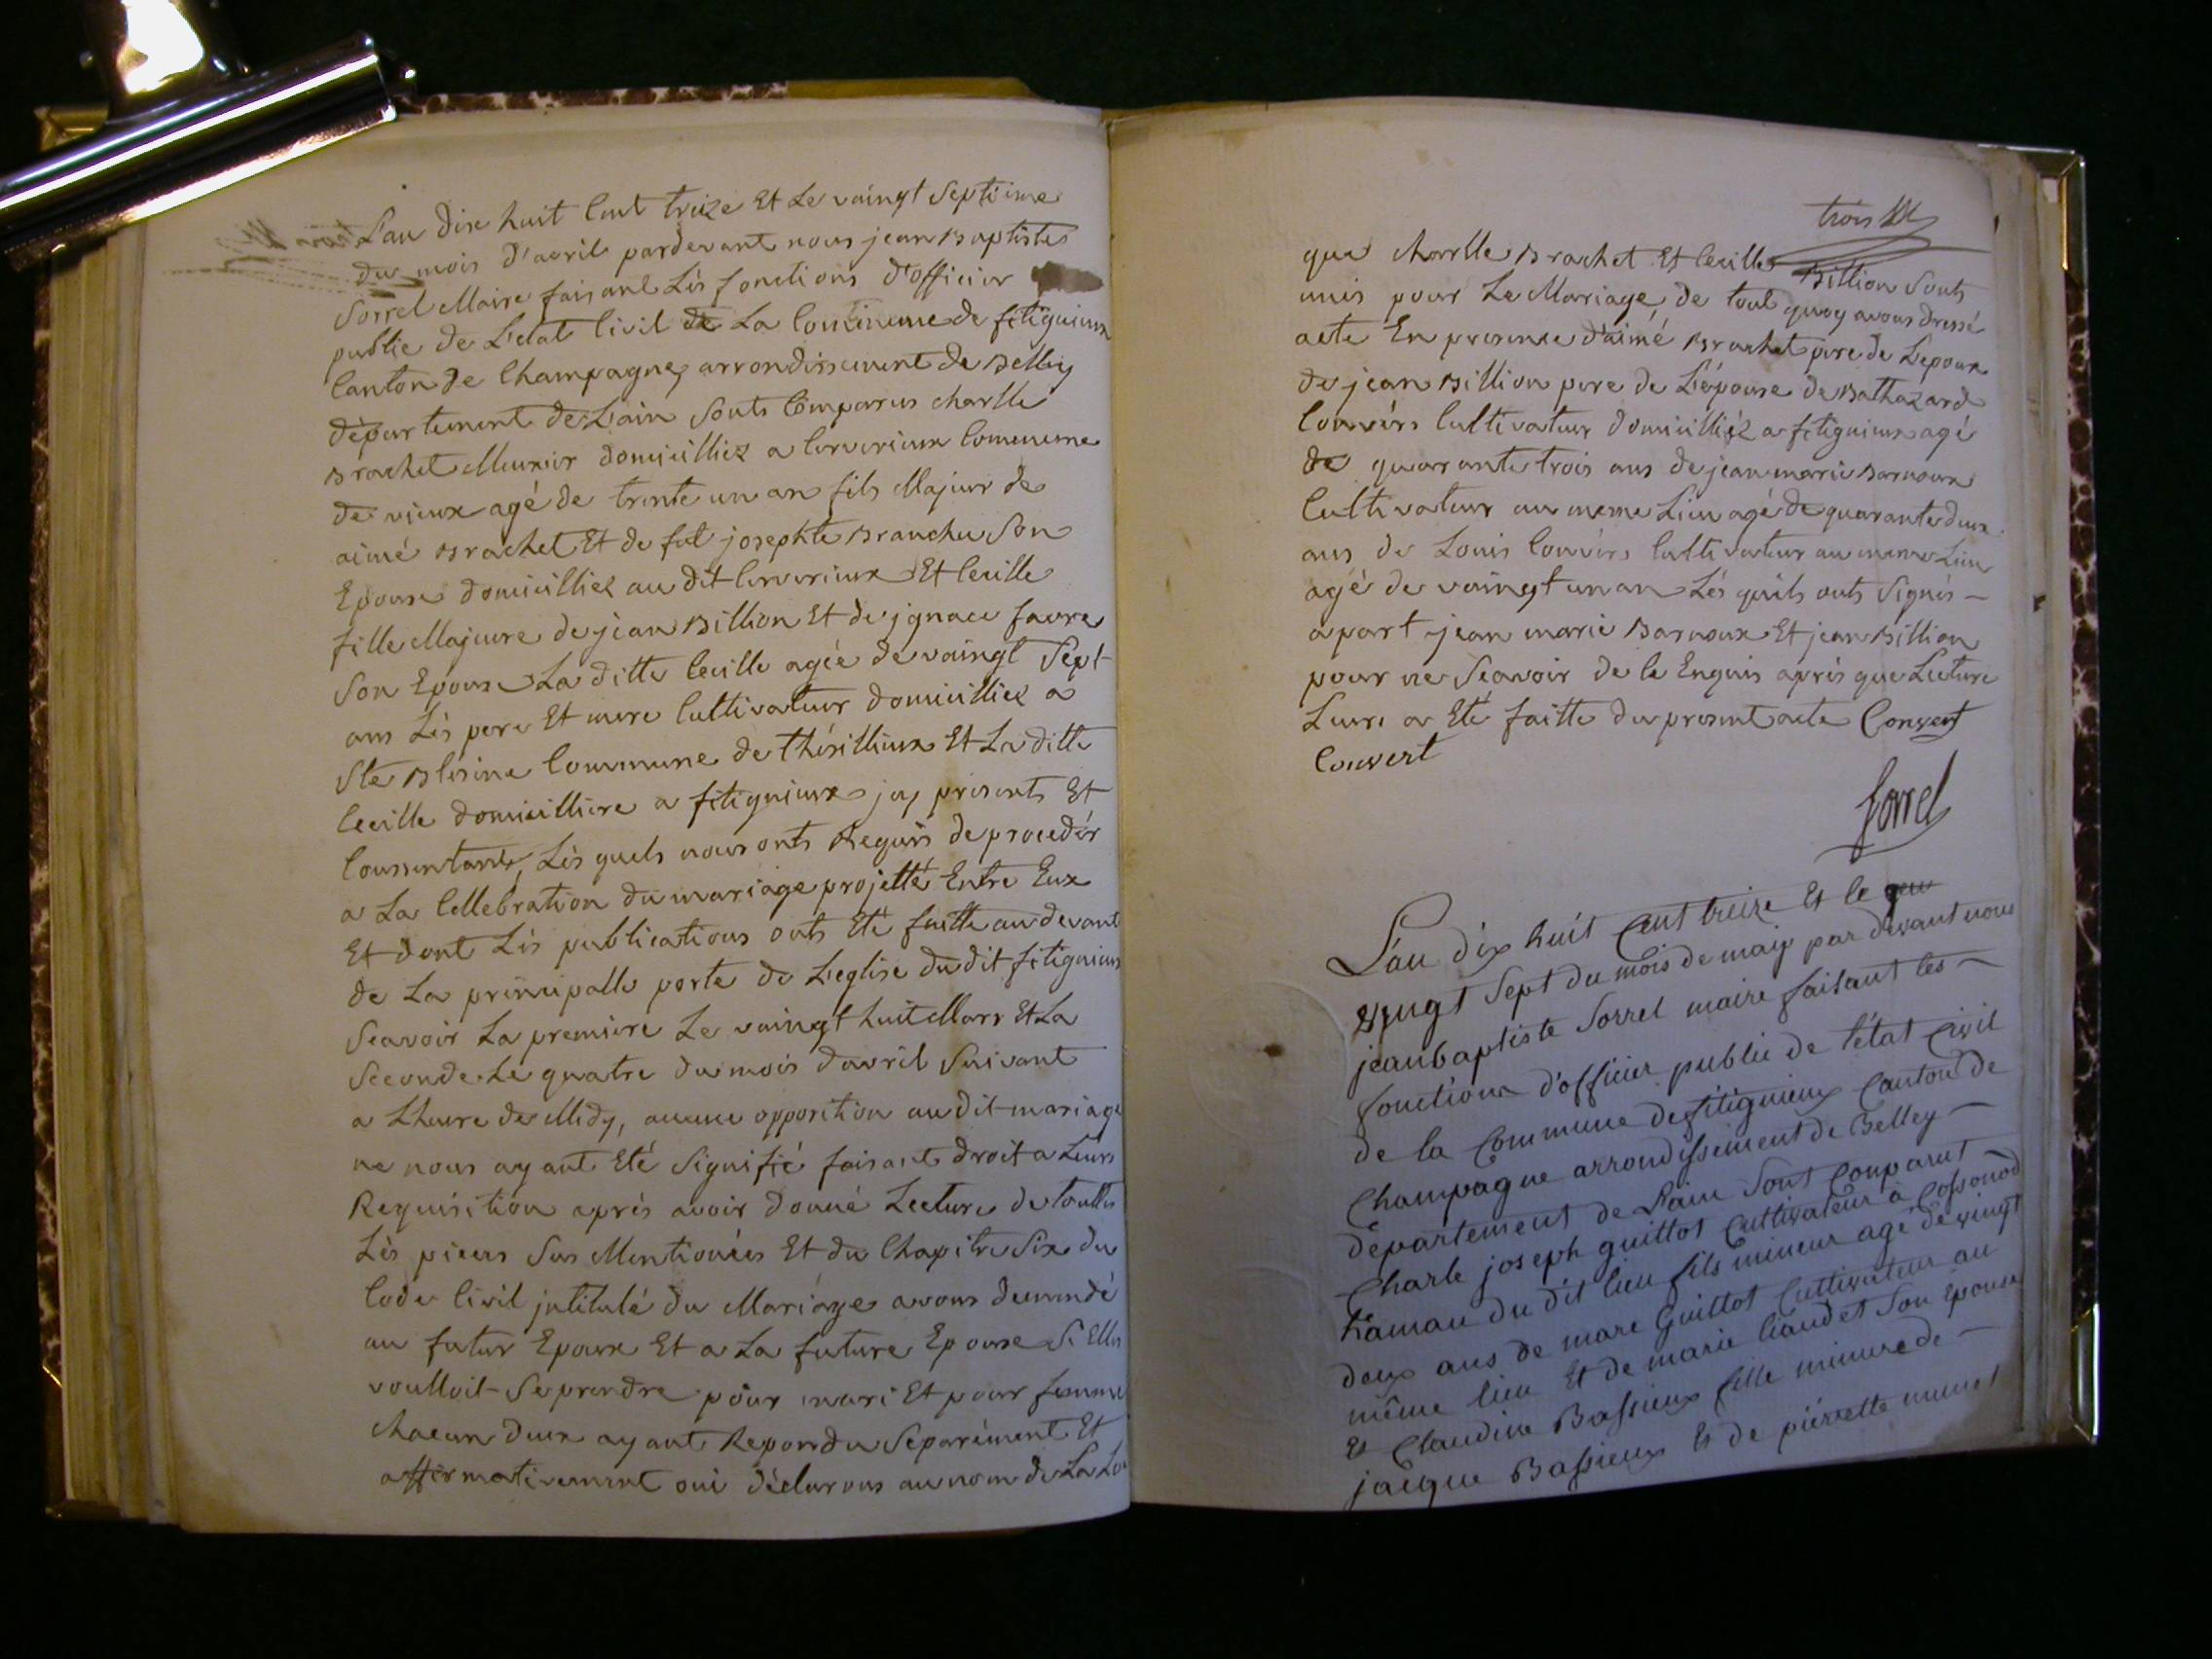 L'an dix huit Cent treize Et Le vaingt Septieme
du mois d'avril pardevant nous jean Baptiste
Sorrel Maire faisant Lès fonctions d'officier
public de L'etat Civil de La Commune de fitignieux
Canton de Champagne, arrondissement de Belley
département de L'ain Sonts Comparus charlle
Brachet Meunier domicilliez a Cerverieux Commune
de vieux agé de trente un an fils Majeur de
aimé Brachet Et de fut josephte Branche Son
Epouse domicilliez au dit Cerverieux Et Cecille
fille Majeure de jean Billion Et de jgnace favre
Son Epouse La ditte Cecille agée de vaingt Sept
ans Lès pere Et mere Cultivateur domicilliez a
Ste Blesine Commune de thésillieux Et La ditte
Cecille domicilliere a fitignieux jcy presents Et
Conssentants, Lès quels nous onts Requis de procedér
a La Cellebration du mariage projetté Entre Eux
Et dont Lès publications onts Eté faitte au devant
de La principalle porte de L'eglise du dit fitignieux
Scavoir La premiere Le vaingt huit Mars Et La
Seconde Le quatre du mois d'avril Suivant
a L'heure de Midy, aucune opposition au dit mariage
ne nous ayant Eté Signifié faisant droit a Leurs
Requisition aprés avoir donné Lecture de touttes
Lès pieces Sus Mentionées Et du Chapitre Six du
Code Civil jntitulé du Mariage avons demmdé
au futur Epoux Et a La future Epouse Si Elles
voulloit Se prendre pour mari Et pour femme
chacun deux ayant Repondu Separément Et
affirmativement oui déclarons au nom de La Loi
trois
que charlle Brachet Et Cecille Billion Sonts
unis pour Le Mariage, de tout quoy avons dressé
acte En presence d'aimé Brachet pere de L'epoux
de jean Billion pere de L'épouse de Bathazard
Couvérs Cultivateur domicilliéz a fitignieux agé
de quarante trois ans de jean marie Barnoux
Cultivateur au meme Lieu agé de quarante deux
ans de Louis Couvérs Cultivateur au meme Lieu
agé de vaingt un an Lés quels onts Signés -
apart jean marie Barnoux Et jean Billion
pour ne Scavoir de ce Enquis aprés que Lecture
Leurs a Eté faitte du present acte Convert
Couvert
Sorrel
L'an dix huit Cent treize et le
vingt Sept du mois de may par devant nous
jean baptiste Sorrel maire faisant les -
fonctions d'officier public de l'état Civil
de la Commune de fitignieux Canton de
Champagne arrondissement de Belley -
département de L'ain Sont Comparut
Charle joseph guittot Cultivateur à Cossonod
hamau du dit lieu fils mineur agé de vingt
deux ans de marc Guittot Cultivateur au
même lieu Et de marie liaudet Son Epouse
Et Claudine Bassieux fille mineure de -
jacque Bassieux Et de pierrette